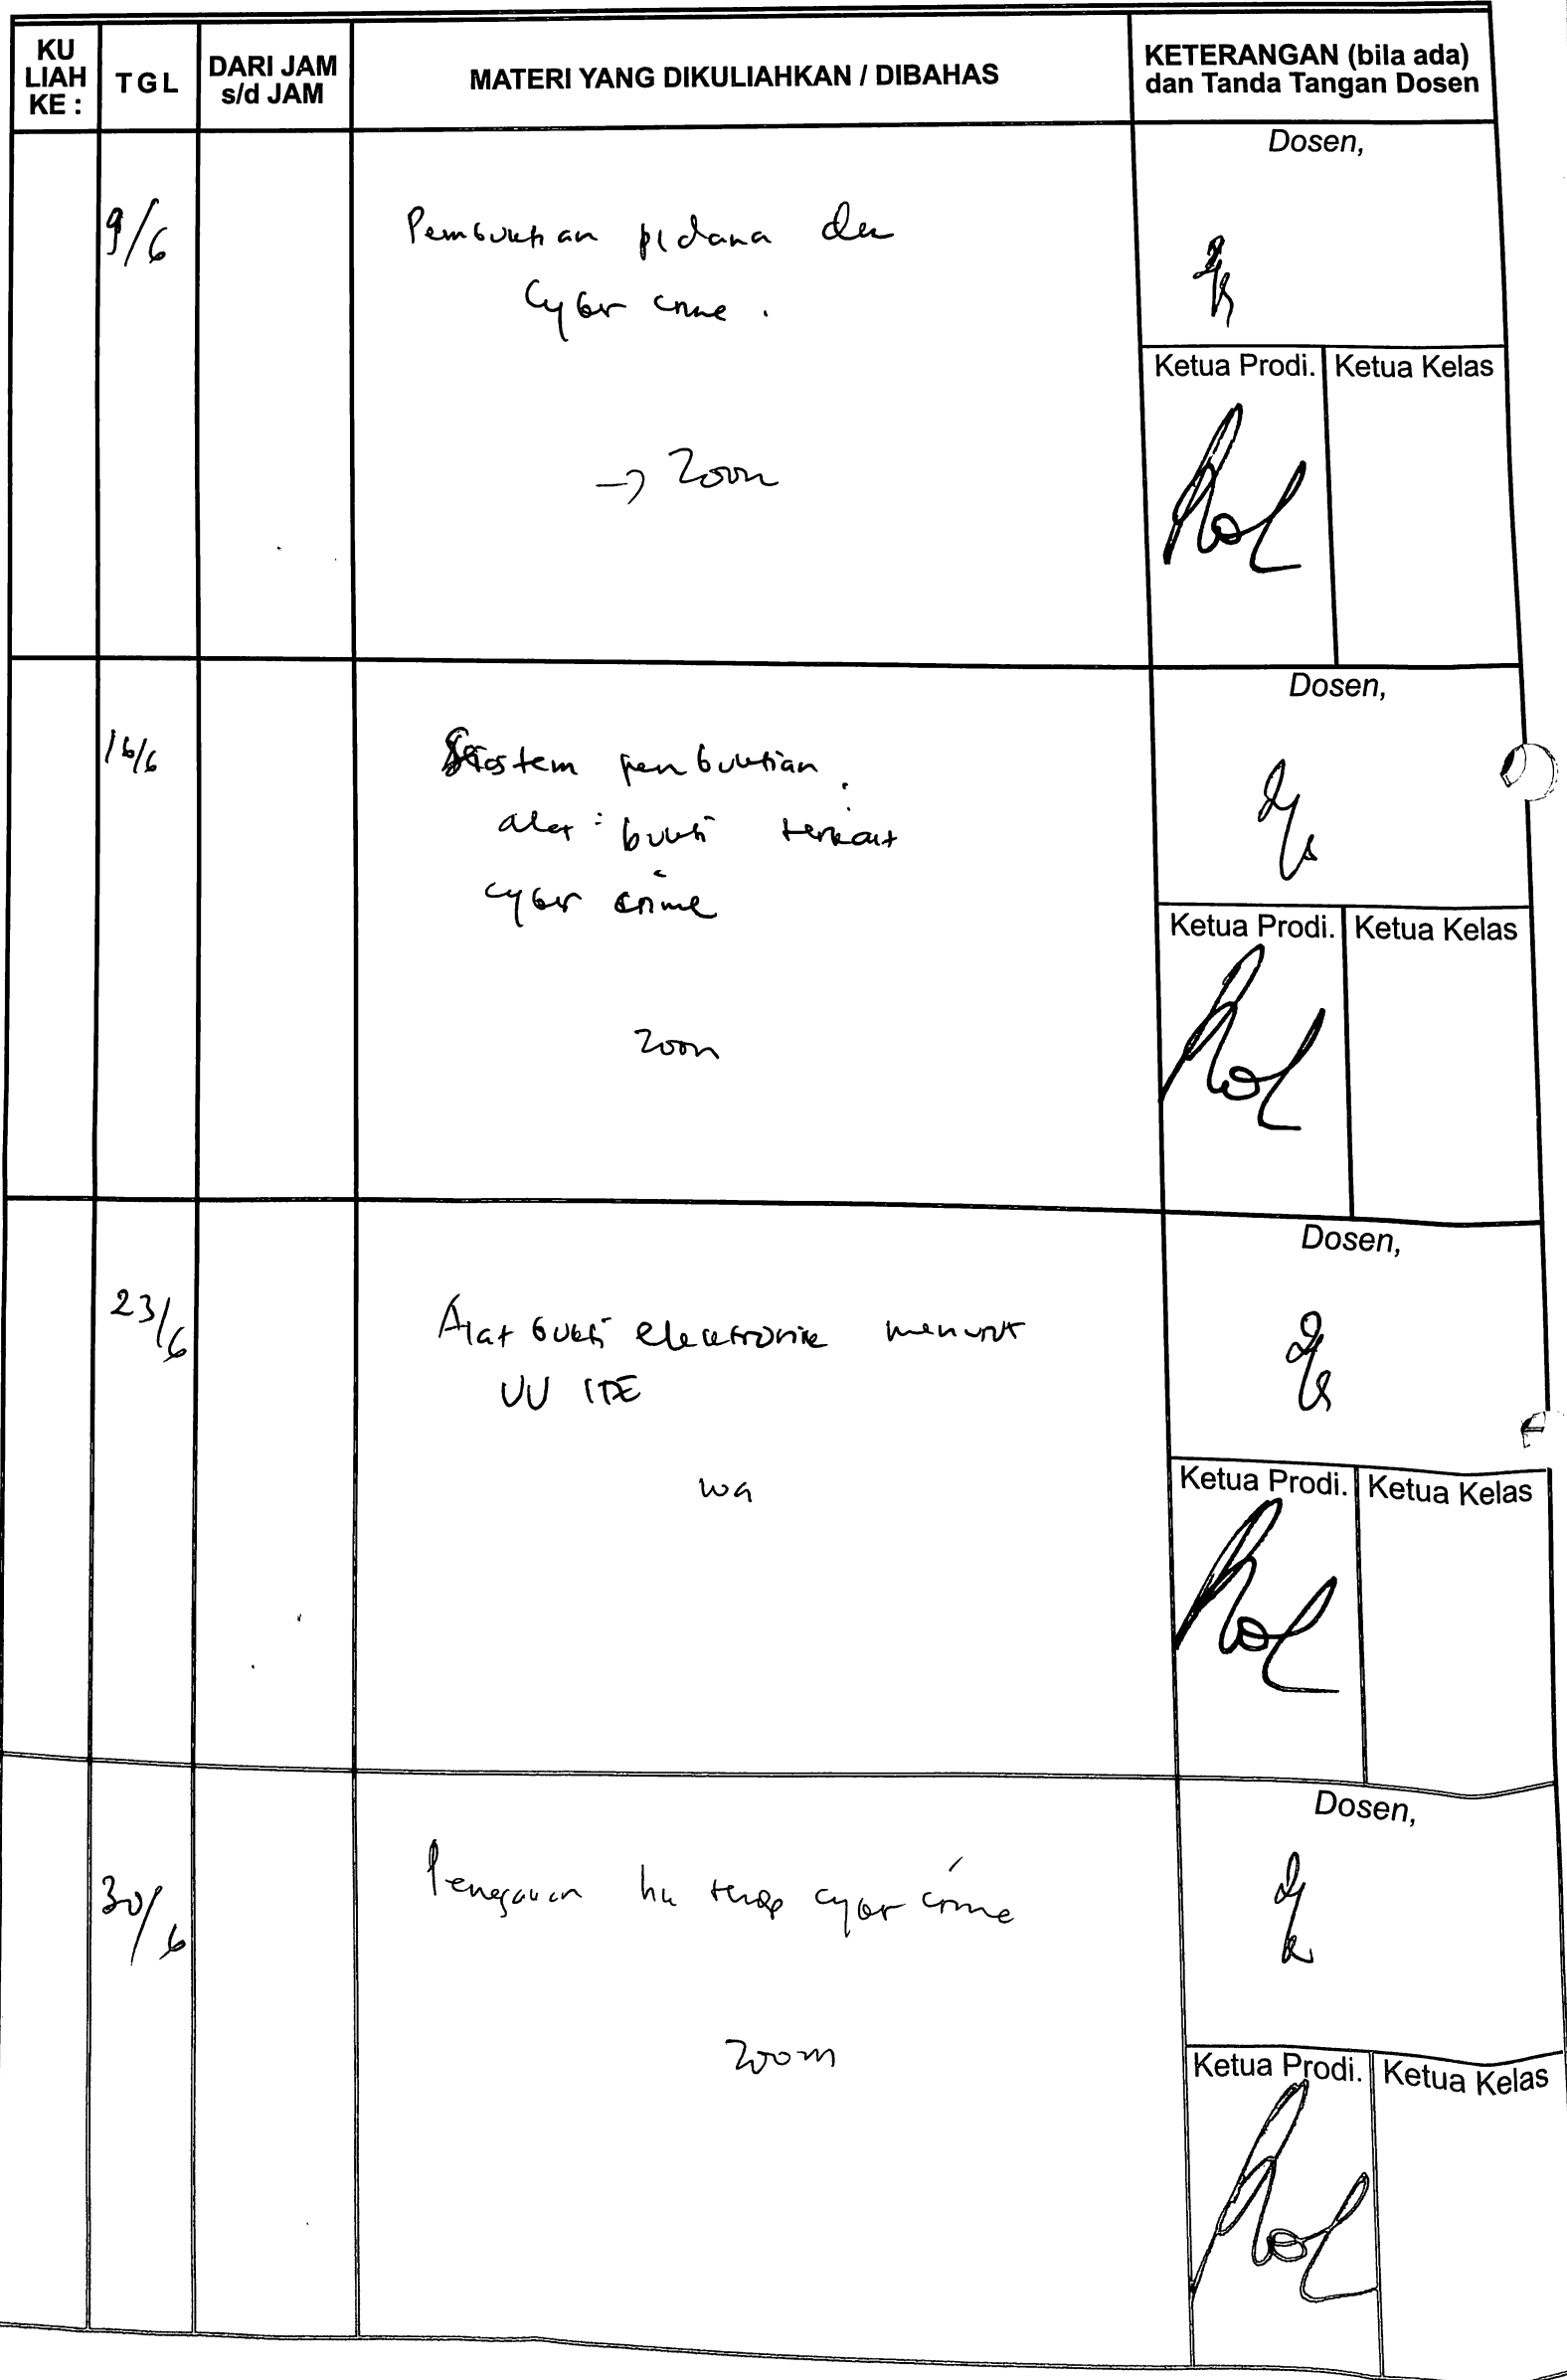 KU
LIAH
KE :
TGL
DARI JAM
s/d JAM
MATERI YANG DIKULIAHKAN / DIBAHAS
KETERANGAN (bila ada)
dan Tanda Tangan Dosen
Dosen,
9/6
Pembuktian pidana
Cyber crime .
→ Zoom
Ketua Prodi.
Ketua Kelas
Dosen,
16/6
Sistem pembuktian
alat bukti terkait
cyber crime
Zoom
Ketua Prodi.
Ketua Kelas
Dosen,
23/6
Alat bukti electronik menurut
UU ITE
wa
Ketua Prodi.
Ketua Kelas
Dosen,
30/6
cyber crime
Zoom
Ketua Prodi.
Ketua Kelas